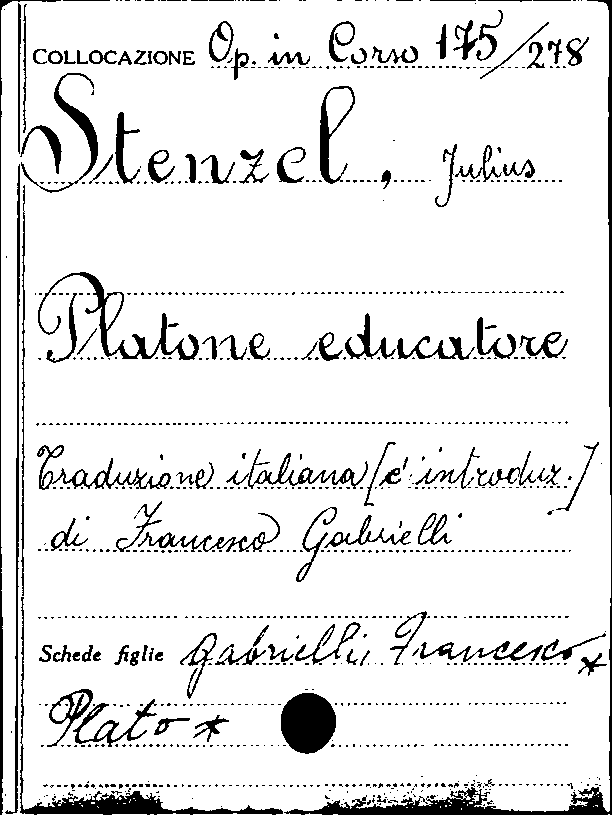 COLLOCAZIONE Op. in Corso 175/278
Stenzel, Julius
Platone educatore
Traduzione italiana [e introduz.]
di Francesco Gabrielli
Schede figlie Gabrielli, Francesco *
Plato *